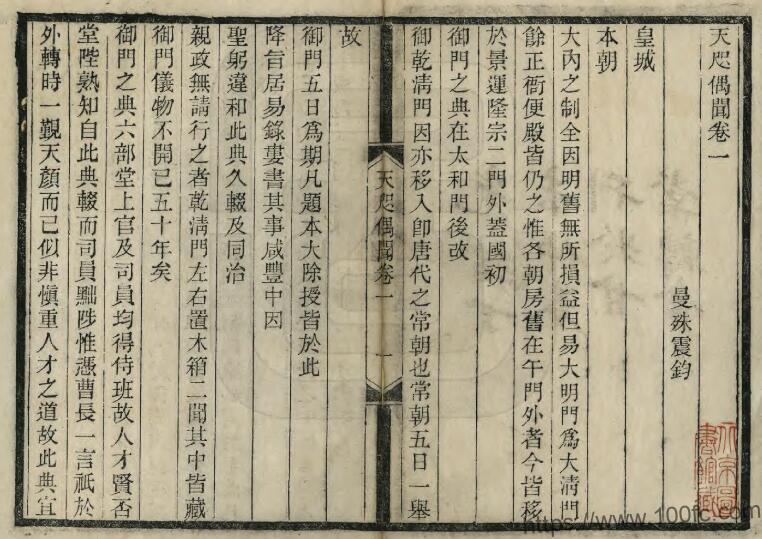 天咫偶聞卷一
曼殊震鈞
皇城
本朝
大內之制全因明舊無所損益但易大明門爲大淸門
餘正衙便殿皆仍之惟各朝房舊在午門外者今皆移
於景運隆宗二門外蓋國初
御門之典在太和門後改
御乾淸門因亦移入卽唐代之常朝也常朝五日一舉
天咫偶聞卷一
一
故
御門五日爲期凡題本大除授皆於此
降旨居易錄婁書其事咸豐中因
聖躬違和此典久輟及同治
親政無請行之者乾淸門左右置木箱二聞其中皆藏
御門儀物不開已五十年矣
御門之典六部堂上官及司員均得侍班故人才賢否
堂陛熟知自此典輟而司員黜陟惟憑曹長一言祇於
外轉時一覲天顏而已似非愼重人才之道故此典宜
https://www.100fc.com